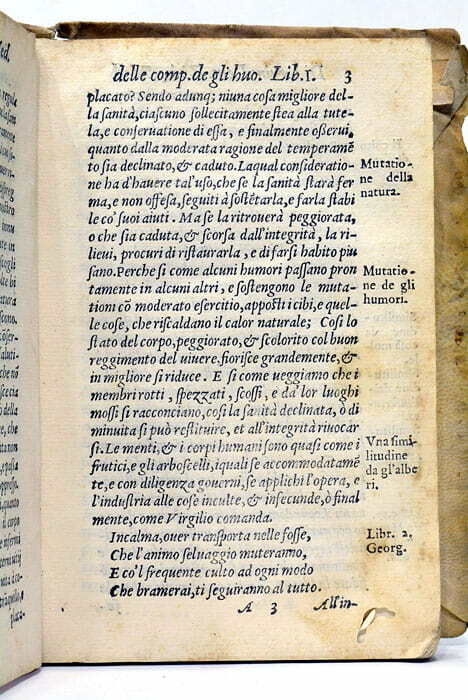 delle comp. de gli huo. Lib. I. 3
placato? Sendo adunq; niuna cosa migliore del-
la sanità, ciascuno sollecitamente stea alla tute-
la, e conseruatione di essa, e finalmente osserui,
quanto dalla moderata ragione del temperamē
to sia declinato, & caduto. Laqual consideratio-
ne ha d'hauere tal'uso, che se la sanità starà fer
ma, e non offesa, seguiti à sostētarla, e farla stabi
le co' suoi aiuti. Ma se la ritrouerà peggiorata,
o che sia caduta, & scorsa dall'integrità, la ri-
lieui, procuri di ristaurarla, e di farsi habito piu
sano. Perche si come alcuni humori passano pron
tamente in alcuni altri, e sostengono le muta-
tioni cō moderato esercitio, apposti i cibi, e quel-
le cose, che riscaldano il calor naturale; Cosi lo
stato del corpo, peggiorato, & scolorito col buon
reggimento del uiuere. fiorisce grandemente, &
in migliore si riduce. E si come ueggiamo che i
membri rotti, spezzati, scossi, e da'lor luoghi
mossi si racconciano, cosi la sanità declinata, ò di
minuita si può restituire, et all'integrità riuocar
si. Le menti, & i corpi humani sono quasi come i
frutici, e gli arboscelli, iquali se accommodatamē
te, e con diligenza governi, se applichi l'opera, e
l'industria alle cose inculte, & infecunde, ò final
mente, come Virgilio comanda.
Incalma, ouer transporta nelle fosse,
Che l'animo seluaggio muteranno,
E co'l frequente culto ad ogni modo
Che bramerai, ti seguiranno al tutto.
A 3 All'in-
Mutatio-
ne della
natura.
Mutatio-
ne de gli
humori.
Vna simi
litudine
da gl'albe
ri.
Libr. 2.
Georg.